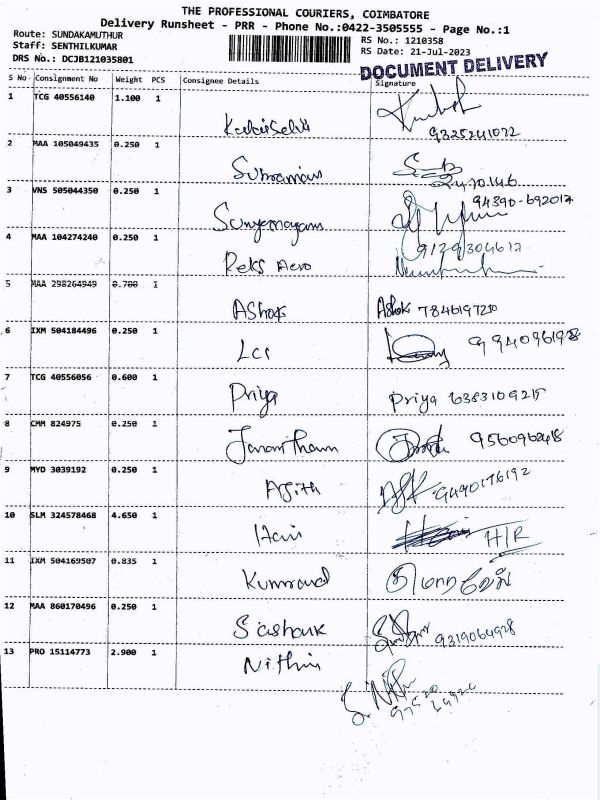 THE PROFESSIONAL COURIERS, COIMBATORE
Delivery Runsheet - PRR - Phone No.:0422-3505555 - Page No.:1
Route: SUNDAKAMUTHUR
Staff: SENTHILKUMAR
DRS No.: DCJB121035801
RS No.: 1210358
RS Date: 21-Jul-2023
DOCUMENT DELIVERY
S No Consignment No Weight PCS Consignee Details Signature
1 TCG 40556140 1.100 1
9325241072
2 MAA 105049435 0.250 1
3 VNS 505044350 0.250 1
94390-692017
4 MAA 104274240 0.250 1
Reks Aero
5 MAA 298264949 0.700 1
Ashok Ashok 7846197210
6 IXM 504184496 0.250 1
LCI
7 TCG 40556056 0.600 1
Priya Priya 6383109215
8 CMM 824975 0.250 1
9 MYD 3039192 0.250 1
Ajith 9490176192
10 SLM 324578468 4.650 1
Hari
11 IXM 504169507 0.835 1
12 MAA 860170496 0.250 1
9319064928
13 PRO 15114773 2.900 1
Nithin